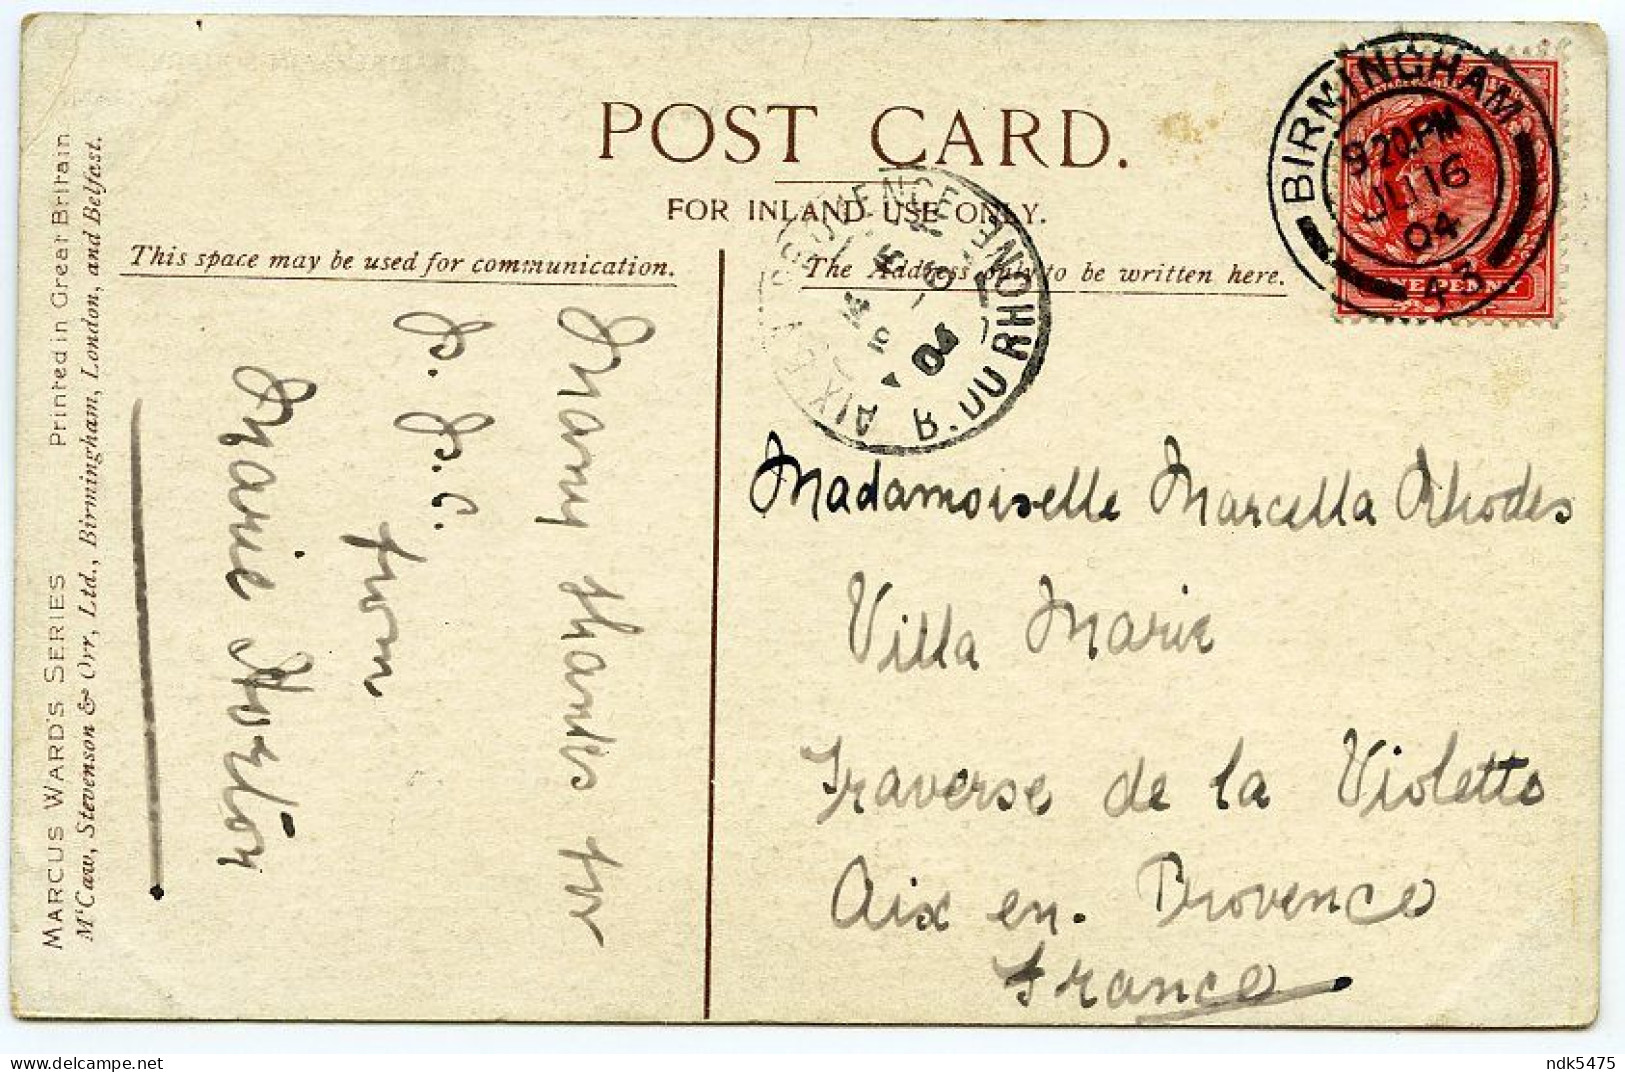 POST CARD.
FOR INLAND USE ONLY.
This space may be used for communication.
The Address only to be written here.
BIRMINGHAM
9 20.PM
JU 16
04
43
ONE PENNY
AIX EN PROVENCE
B. DU RHONE
04
MARCUS WARD'S SERIES Printed in Great Britain
M'Caw, Stevenson & Orr, Ltd., Birmingham, London, and Belfast.
Many thanks for
P. P. C.
from
Marie
Madamoiselle Marcella Rhodes
Villa Marie
Traverse de la Violette
Aix en. Provence
France
delcampe.net
ndk5475